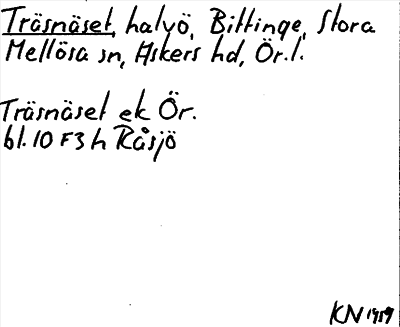 Träsnäset, halvö, Bittinge, Stora
Mellösa sn, Askers hd, Ör.l.
Träsnäset ek Ör.
bl. 10 F3 h Råsjö
KN 1959